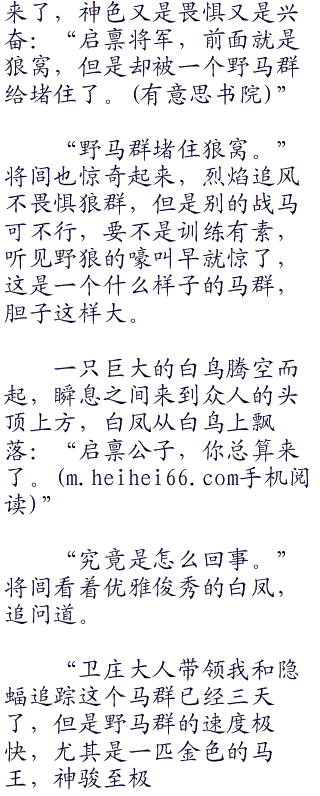 来了，神色又是畏惧又是兴
奋：“启禀将军，前面就是
狼窝，但是却被一个野马群
给堵住了。(有意思书院)”
“野马群堵住狼窝。”
将闾也惊奇起来，烈焰追风
不畏惧狼群，但是别的战马
可不行，要不是训练有素，
听见野狼的嚎叫早就惊了，
这是一个什么样子的马群，
胆子这样大。
一只巨大的白鸟腾空而
起，瞬息之间来到众人的头
顶上方，白凤从白鸟上飘
落：“启禀公子，你总算来
了。(m.heihei66.com手机阅
读)”
“究竟是怎么回事。”
将闾看着优雅俊秀的白凤，
追问道。
“卫庄大人带领我和隐
蝠追踪这个马群已经三天
了，但是野马群的速度极
快，尤其是一匹金色的马
王，神骏至极